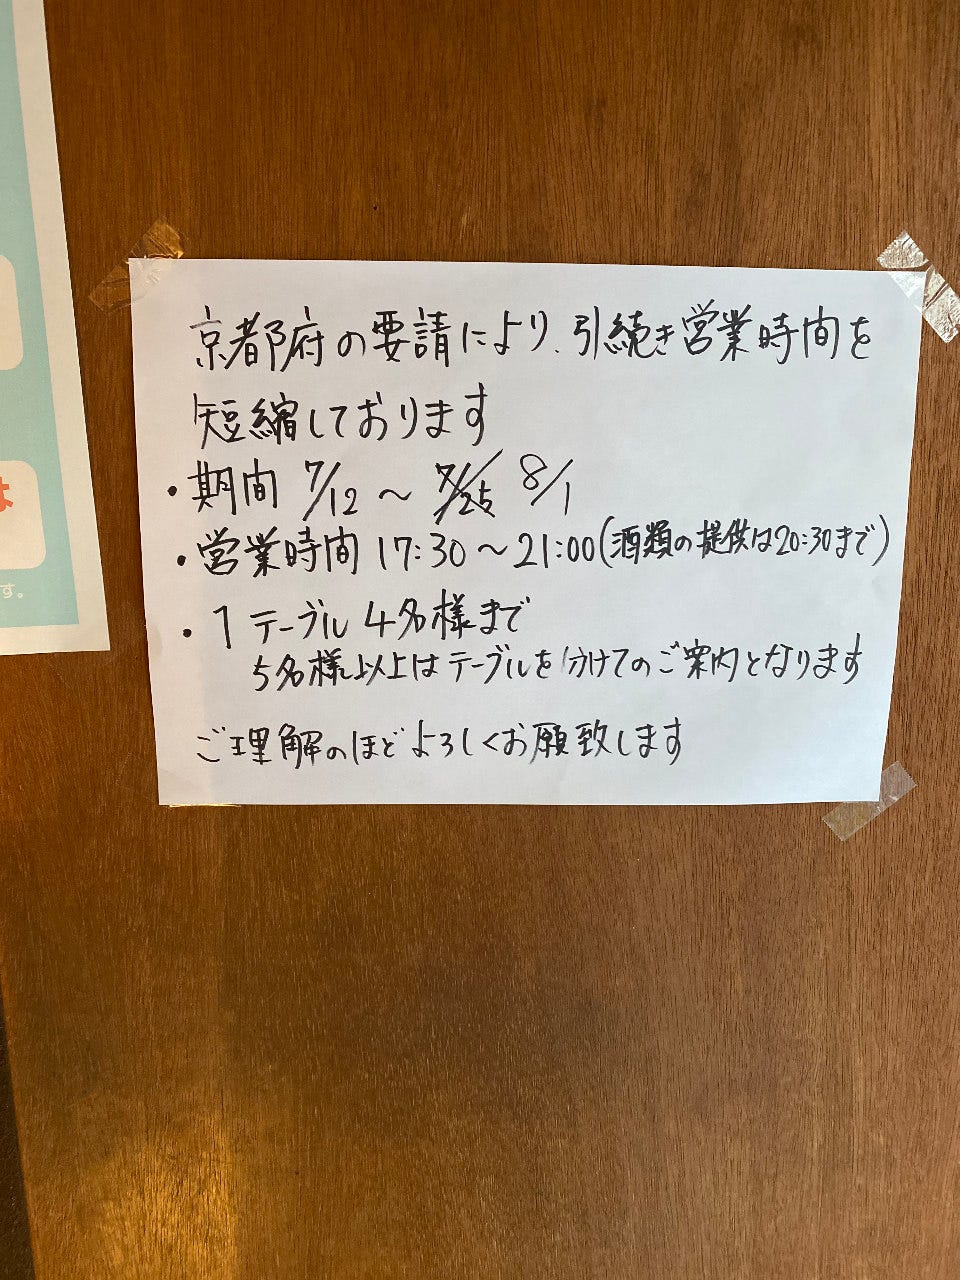 京都府の要請により、引続き営業時間を
短縮しております
・期間 7/12 ～ 7/25 8/1
・営業時間 17:30～21:00(酒類の提供は20:30まで)
・1テーブル 4名様まで
5名様以上はテーブルを分けてのご案内となります
ご理解のほどよろしくお願致します
は
す。